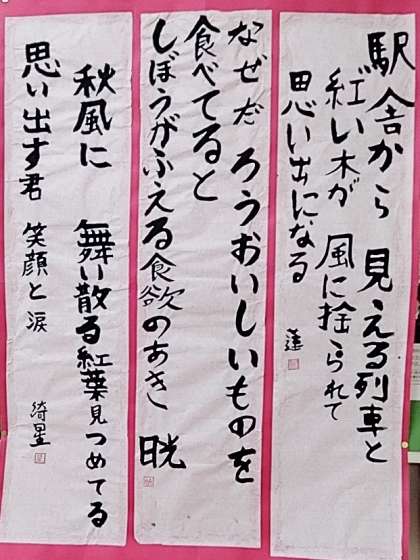 駅舎から 見える列車と
紅い木が 風に揺られて
思い出になる
蓮
なぜだろうおいしいものを
食べてると
しぼうがふえる食欲のあき 晄
秋風に 舞い散る紅葉見つめてる
思い出す君 笑顔と涙
綺星